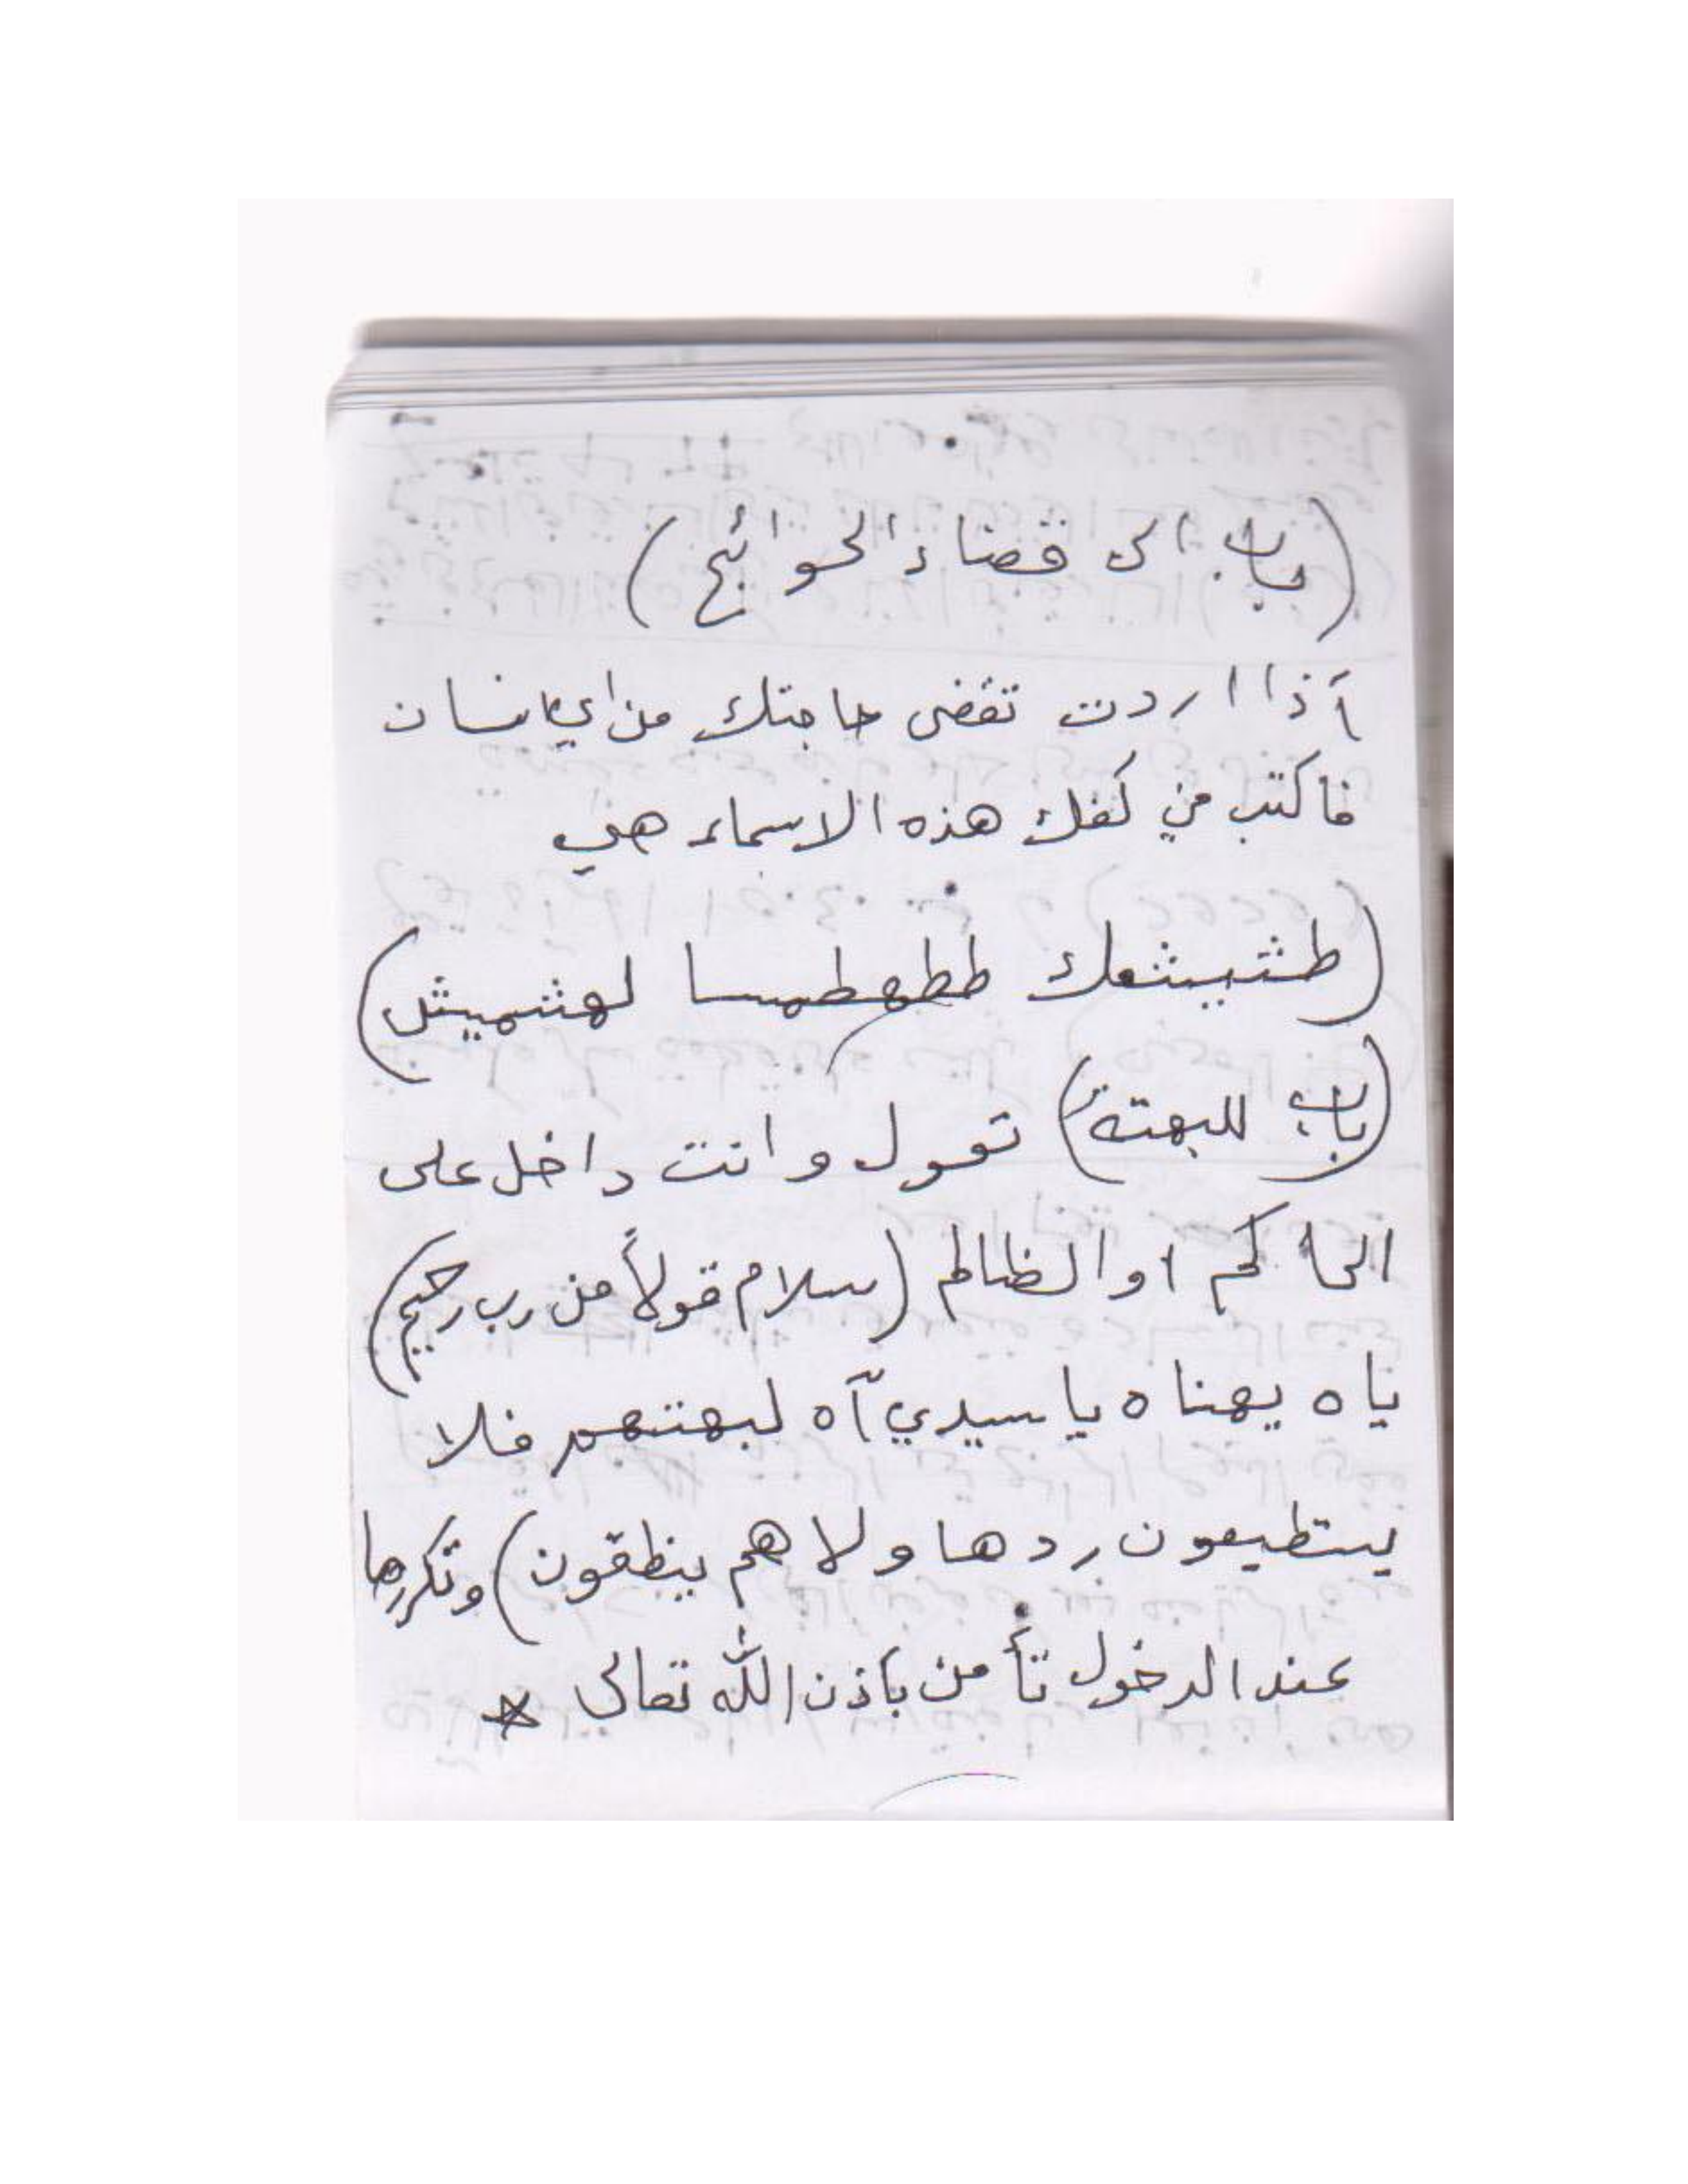 (باب الى قضاء الحوائج)
أذا اردت تقضى حاجتك من اي انسان
فاكتب في كفك هذه الاسماء هي
(طشيشعك ططهطمسا لهشميش)
(باب للبهتة) تقول وانت داخل على
الحاكم او الظالم (سلام قولاً من رب رحيم)
ياه يهناه ياسيدي آه لبهتهم فلا
يستطيعون ردها ولا هم ينظقون) وتكررها
عند الدخول تأمن بأذن الله تعالى *